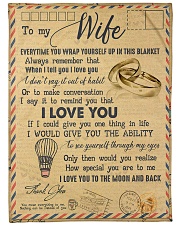 To my Wife
EVERYTIME YOU WRAP YOURSELF UP IN THIS BLANKET
Always remember that
When I tell you I love you
I don't say it out of habit
Or to make conversation
I say it to remind you that
I LOVE YOU
If I could give you one thing in life
I WOULD GIVE YOU THE ABILITY
To see yourself through my eyes
Only then would you realize
How special you are to me
I LOVE YOU TO THE MOON AND BACK